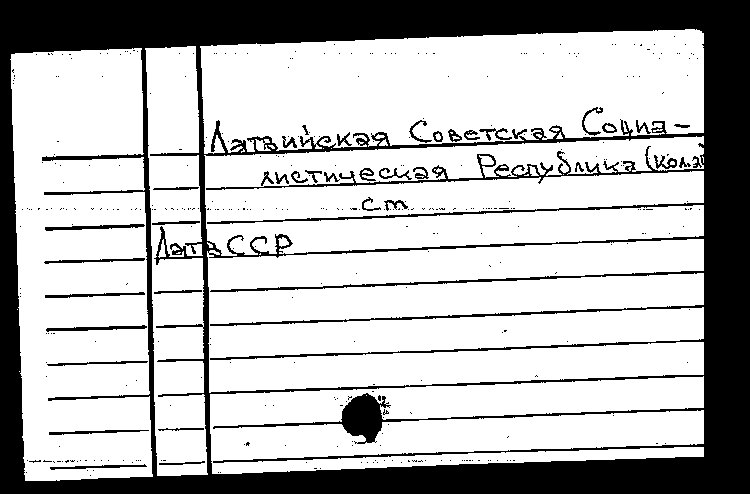 Латвийская Советская Социа-
листическая Республика
см
ЛатвССР